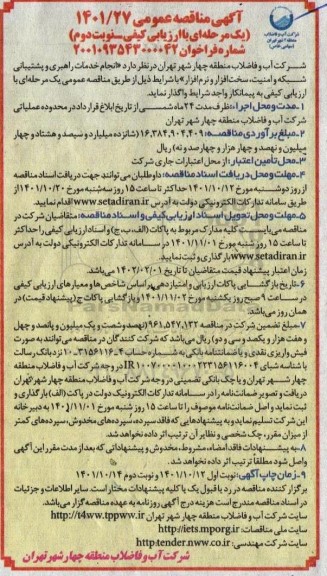 آگهی مناقصه عمومی ۱۴۰۱/۲۷
(یک مرحله‌ای با ارزیابی کیفی_نوبت دوم)
شماره فراخوان ۲۰۰۱۰۹۳۵۴۳۰۰۰۰۴۲
شرکت آب و فاضلاب
منطقه ۴ شهر تهران
(سهامی خاص)
شرکت آب و فاضلاب منطقه چهار شهر تهران در نظر دارد «انجام خدمات راهبری و پشتیبانی
شبکه و امنیت، سخت‌افزار و نرم‌افزار» با شرایط ذیل از طریق مناقصه عمومی یک مرحله‌ای با
ارزیابی کیفی به پیمانکار واجد شرایط واگذار نماید.
۱ـ مدت و محل اجرا: ظرف مدت ۲۴ ماه شمسی از تاریخ ابلاغ قرارداد در محدوده عملیاتی
شرکت آب و فاضلاب منطقه چهار شهر تهران
۲ـ مبلغ برآوردی مناقصه: ۱۶,۳۸۴,۹۰۴,۴۰۹ (شانزده میلیارد و سیصد و هشتاد و چهار
میلیون و نهصد و چهار هزار و چهارصد و نه) ریال
۳ـ محل تأمین اعتبار: از محل اعتبارات جاری شرکت
۴ـ مهلت و محل دریافت اسناد مناقصه: داوطلبان می‌توانند جهت دریافت اسناد مناقصه
از روز دوشنبه مورخ ۱۴۰۱/۱۰/۱۲ حداکثر تا ساعت ۱۵ روز سه‌شنبه مورخ ۱۴۰۱/۱۰/۲۰ از
طریق سامانه تدارکات الکترونیکی دولت به آدرس www.setadiran.ir اقدام نمایند.
۵ـ مهلت و محل تحویل اسناد ارزیابی کیفی و اسناد مناقصه: متقاضیان شرکت در
مناقصه می‌بایست کلیه مدارک مربوط به پاکات (الف، ب، ج) و اسناد ارزیابی کیفی را حداکثر
تا ساعت ۱۵ روز شنبه مورخ ۱۴۰۱/۱۱/۰۱ در سامانه تدارکات الکترونیکی دولت به آدرس
www.setadiran.ir بارگذاری و ثبت نمایند.
زمان اعتبار پیشنهاد قیمت متقاضیان تا تاریخ ۱۴۰۲/۰۲/۰۱ می‌باشد.
۶ـ تاریخ بازگشایی پاکات ارزیابی و امتیازدهی براساس شاخص‌ها و معیارهای ارزیابی کیفی
در ساعت ۹ صبح روز یکشنبه مورخ ۱۴۰۱/۱۱/۰۲ و بازگشایی پاکات ج (پیشنهاد قیمت) در
همان روز می‌باشد.
۷ـ مبلغ تضمین شرکت در مناقصه ۹۶۱,۵۴۷,۱۳۲ (نهصد و شصت و یک میلیون و پانصد و چهل
و هفت هزار و یکصد و سی و دو) ریال می‌باشد که شرکت کنندگان در مناقصه می‌توانند به صورت
فیش واریزی نقدی و یا ضمانتنامه بانکی به شماره حساب نزد بانک رسالت
با شناسه شبای در وجه شرکت آب و فاضلاب منطقه
چهار شهر تهران و یا چک بانکی تضمینی در وجه شرکت آب و فاضلاب منطقه چهار شهر تهران
دریافت و تصویر ضمانتنامه را در سامانه تدارکات الکترونیک دولت در پاکت (الف) بارگذاری و
ثبت نماید و اصل ضمانت‌نامه موصوف را تا ساعت ۱۵ روز شنبه مورخ ۱۴۰۱/۱۱/۰۱ به دبیرخانه
این شرکت تسلیم نماید و به پیشنهادهایی که فاقد سپرده، سپرده‌های مخدوش، سپرده‌های کمتر
از میزان مقرر، چک شخصی و نظایر آن ترتیب اثر داده نخواهد شد.
۸ـ به پیشنهادات فاقد امضاء، مشروط، مخدوش و پیشنهاداتی که بعد از مدت مقرر این آگهی
واصل شود مطلقاً ترتیب اثر داده نخواهد شد.
۹ـ زمان چاپ آگهی: نوبت اول ۱۴۰۱/۱۰/۱۲ و نوبت دوم ۱۴۰۱/۱۰/۱۴
برگزار کننده مناقصه در رد یا قبول یک یا کلیه پیشنهادات مختار است. سایر اطلاعات و جزئیات
در اسناد مناقصه مندرج است هزینه درج آگهی روزنامه به عهده مناقصه‌گزار می‌باشد.
سایت شرکت آب و فاضلاب منطقه چهار شهر تهران http://t4ww.tppww.ir
سایت ملی مناقصات: http://iets.mporg.ir
سایت شرکت مهندسی: http:tender.nww.co.ir
شرکت آب و فاضلاب منطقه چهار شهر تهران